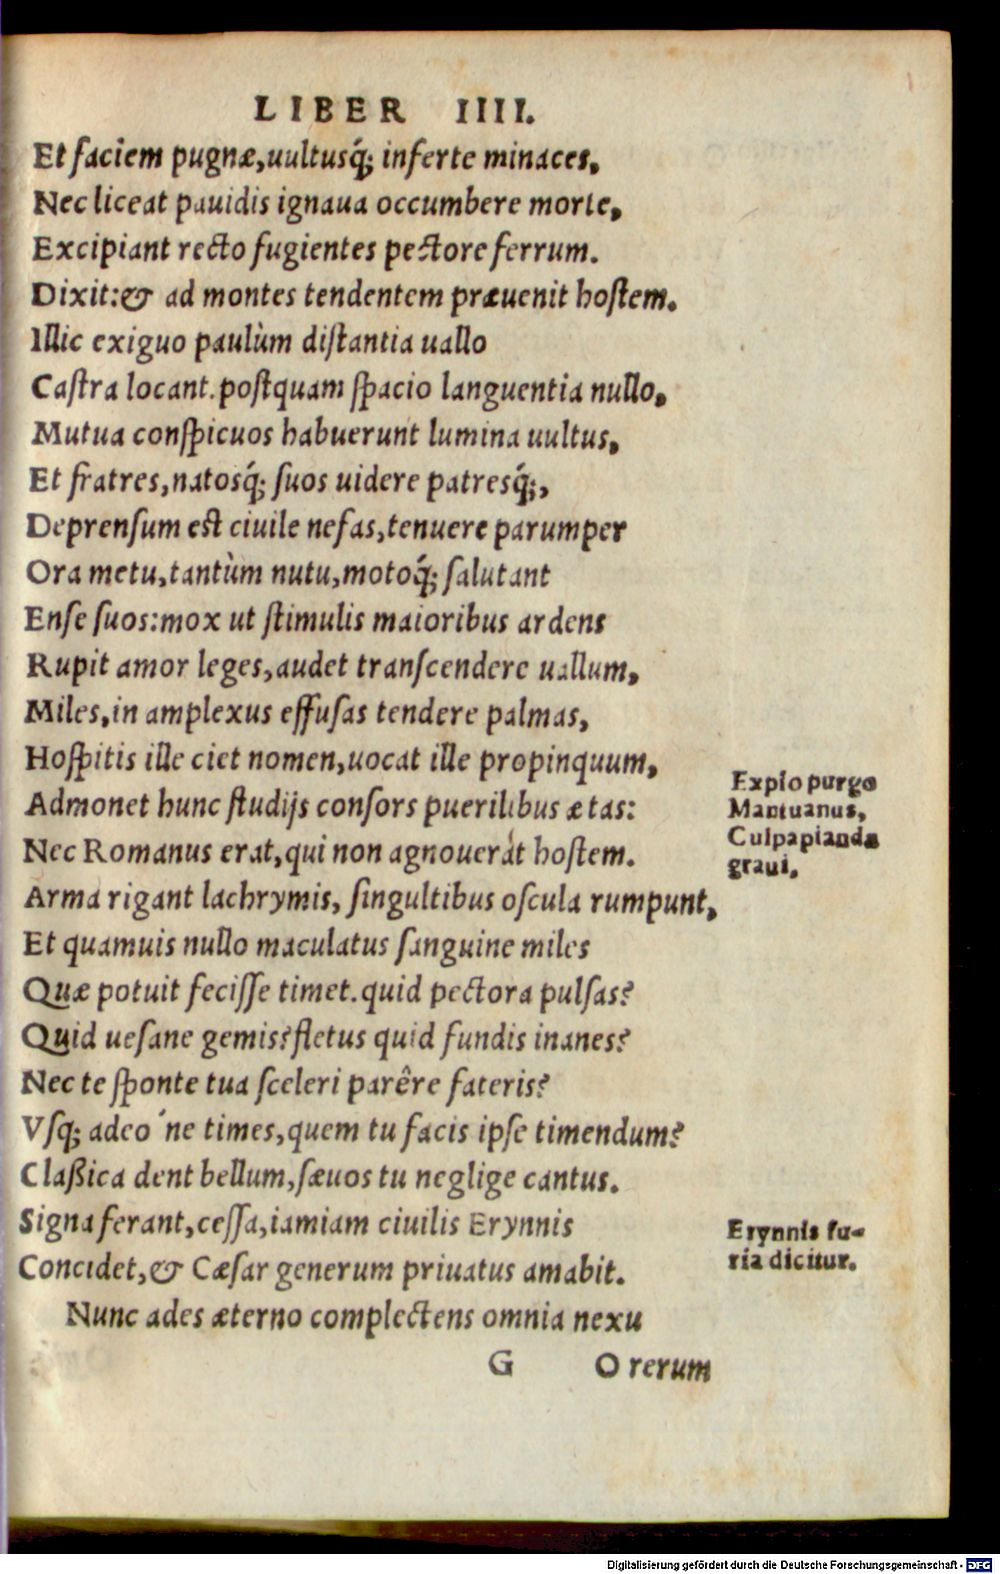 LIBER IIII.
Et faciem pugnæ, uultusq́; inferte minaces,
Nec liceat pauidis ignaua occumbere morte,
Excipiant recto fugientes pectore ferrum.
Dixit: & ad montes tendentem præuenit hostem.
Illic exiguo paulùm distantia uallo
Castra locant. postquam spacio languentia nullo,
Mutua conspicuos habuerunt lumina uultus,
Et fratres, natosq́; suos uidere patresq́;,
Deprensum est ciuile nefas, tenuere parumper
Ora metu, tantùm nutu, motoq́; salutant
Ense suos: mox ut stimulis maioribus ardens
Rupit amor leges, audet transcendere uallum,
Miles, in amplexus effusas tendere palmas,
Hospitis ille ciet nomen, uocat ille propinquum,
Admonet hunc studijs consors puerilibus ætas:
Nec Romanus erat, qui non agnouerát hostem.
Arma rigant lachrymis, singultibus oscula rumpunt,
Et quamuis nullo maculatus sanguine miles
Quæ potuit fecisse timet. quid pectora pulsas?
Quid uesane gemis? fletus quid fundis inanes?
Nec te sponte tua sceleri parêre fateris?
Vsq; adeo ́ne times, quem tu facis ipse timendum?
Claßica dent bellum, sæuos tu neglige cantus.
Signa ferant, cessa, iamiam ciuilis Erynnis
Concidet, & Cæsar generum priuatus amabit.
Nunc ades æterno complectens omnia nexu
G O rerum
Explo purgo
Mantuanus,
Culpa pianda
graui.
Erynnis fu-
ria dicitur.
Digitalisierung gefördert durch die Deutsche Forschungsgemeinschaft - DFG